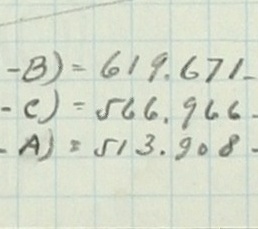 -B) = 619.671-
-C) = 566.966-
- A) = 513.908-